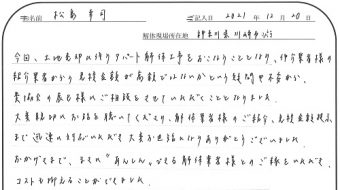 お名前 松島 幸司 ご記入日 2021 年 12 月 20 日
解体現場所在地 神奈川県川崎市
今回、土地売却に伴うアパート解体工事をおこなうことになり、仲介業者様の
紹介業者からの見積金額が高額ではないかという疑問や不安から、
貴協会の皆さまにご相談をさせていただくことになりました。
大変親切にお話を聴いてくださり、解体業者様のご紹介、見積金額提示
まで迅速に対応いただき大変お世話になりありがとうございました。
おかげさまで、まさに"あんしん"できる解体業者様とのご縁をいただき、
コストも抑えることができました。